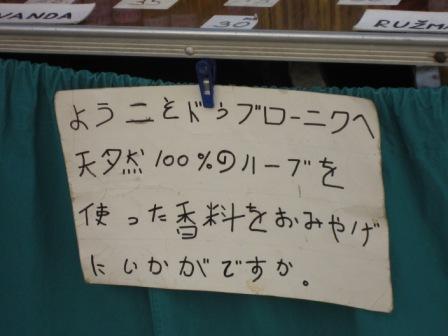 VANDA
35
30
RUŽM
ようこそドゥブローニクへ
天然100%のハーブを
使った香料をおみやげ
にいかがですか。